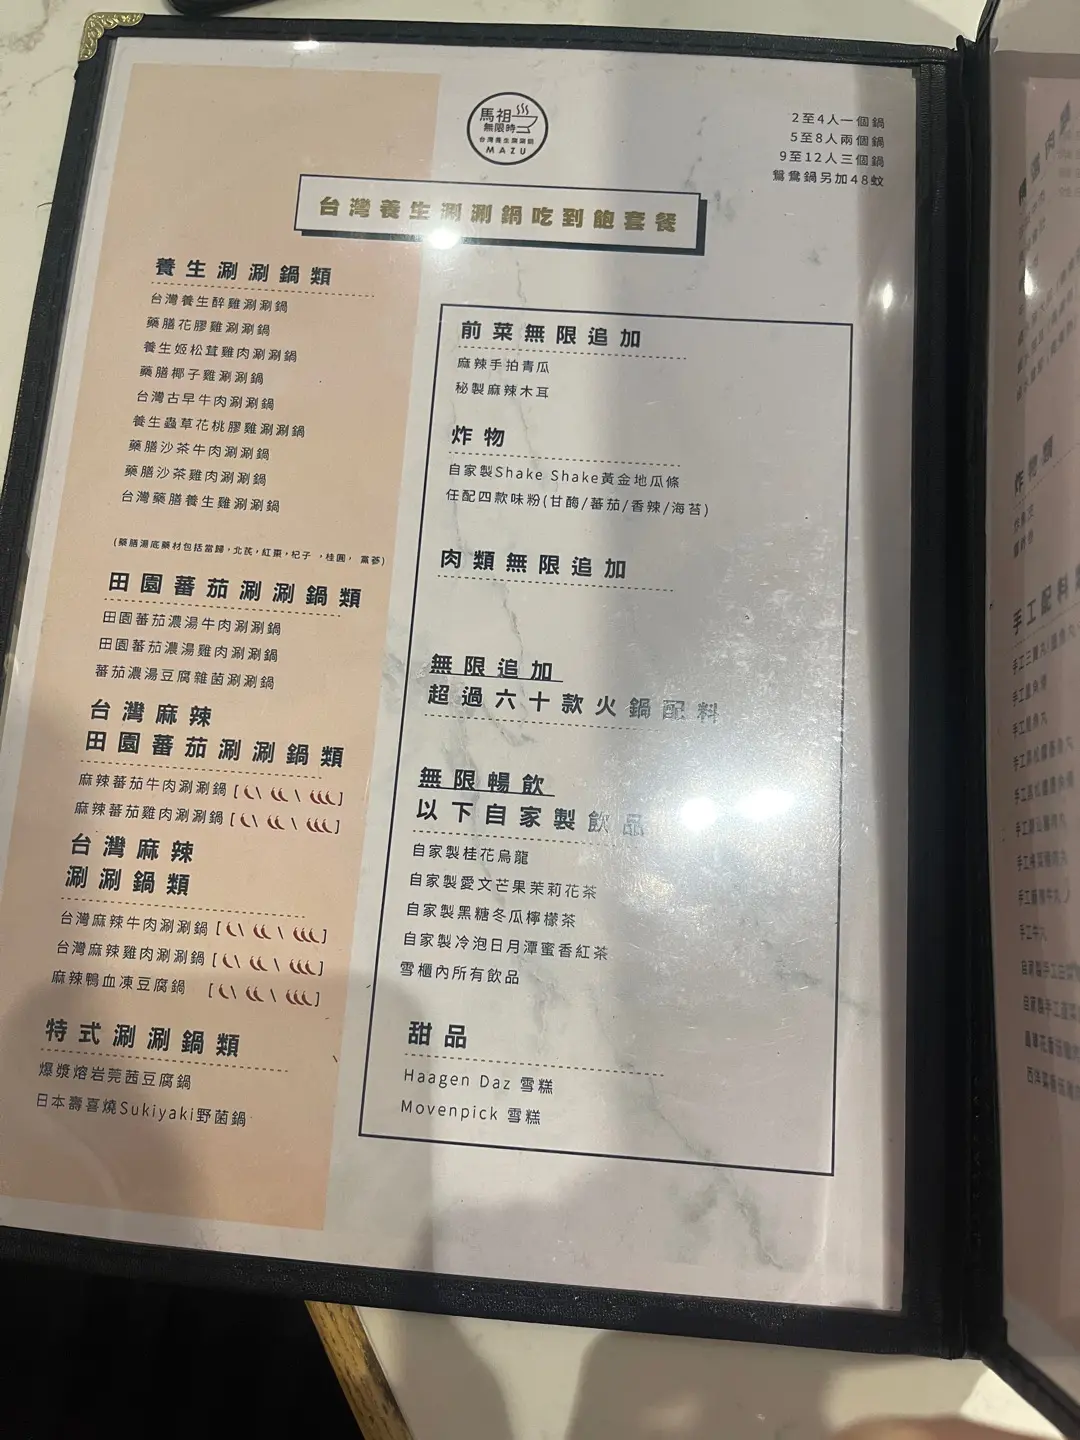 馬祖
無限時
台灣養生涮涮鍋
MAZU
2至4人一個鍋
5至8人兩個鍋
9至12人三個鍋
鴛鴦鍋另加48蚊
台灣養生涮涮鍋吃到飽套餐
養生涮涮鍋類
台灣養生醉雞涮涮鍋
藥膳花膠雞涮涮鍋
養生姬松茸雞肉涮涮鍋
藥膳椰子雞涮涮鍋
台灣古早牛肉涮涮鍋
養生蟲草花桃膠雞涮涮鍋
藥膳沙茶牛肉涮涮鍋
藥膳沙茶雞肉涮涮鍋
台灣藥膳養生雞涮涮鍋
(藥膳湯底藥材包括當歸，北芪，紅棗，杞子，桂圓，黨蔘)
田園蕃茄涮涮鍋類
田園蕃茄濃湯牛肉涮涮鍋
田園蕃茄濃湯雞肉涮涮鍋
蕃茄濃湯豆腐雜菌涮涮鍋
台灣麻辣
田園蕃茄涮涮鍋類
麻辣蕃茄牛肉涮涮鍋
麻辣蕃茄雞肉涮涮鍋
台灣麻辣
涮涮鍋類
台灣麻辣牛肉涮涮鍋
台灣麻辣雞肉涮涮鍋
麻辣鴨血凍豆腐鍋
特式涮涮鍋類
爆漿熔岩莞茜豆腐鍋
日本壽喜燒Sukiyaki野菌鍋
前菜無限追加
麻辣手拍青瓜
秘製麻辣木耳
炸物
自家製Shake Shake黃金地瓜條
任配四款味粉(甘梅/蕃茄/香辣/海苔)
肉類無限追加
無限追加
超過六十款火鍋配料
無限暢飲
以下自家製飲品
自家製桂花烏龍
自家製愛文芒果茉莉花茶
自家製黑糖冬瓜檸檬茶
自家製冷泡日月潭蜜香紅茶
雪櫃內所有飲品
甜品
Haagen Daz 雪糕
Movenpick 雪糕
炸物類
手工配料